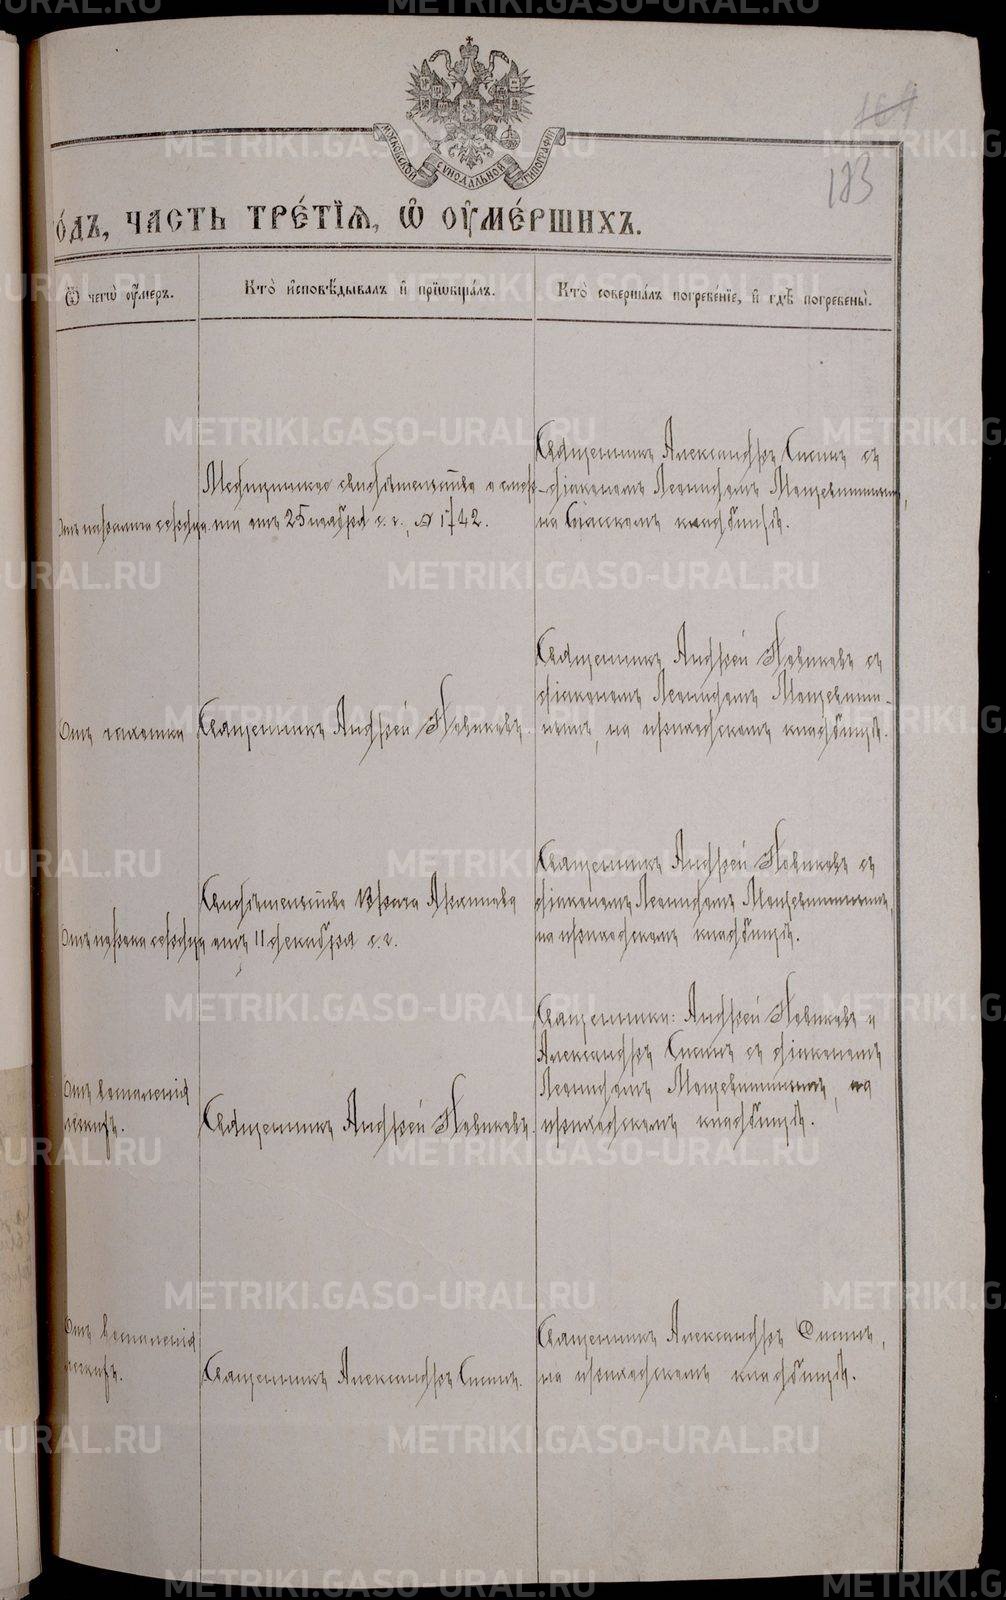 METRIKI.GASO-URAL.RU
164
МОСКОВСКОЙ СѴНОДАЛЬНОЙ ТИПОГРАФІИ
183
го́дъ, часть тре́тїѧ, ѡ҆ оу҆ме́ршихъ.
Ѿ чегѡ̀ оу҆́меръ.
Кто̀ и҆сповѣ́дывалъ и҆ прїѡбща́лъ.
Кто̀ соверша́лъ погребе́нїе, и҆ гдѣ̀ погребены̀.
Отъ паралича сердца
Медицинское свидѣтельство о смер-
ти отъ 25 ноября с. г., № 1742.
Священникъ Александръ Сысинъ съ
діакономъ Леонидомъ
на Спасскомъ кладбищѣ.
Отъ чахотки
Священникъ Андрей Новиковъ.
Священникъ Андрей Новиковъ съ
діакономъ Леонидомъ
на приходскомъ кладбищѣ.
Отъ порока сердца
Свидѣтельство Врача Архипова
отъ 11 декабря с. г.
Священникъ Андрей Новиковъ съ
діакономъ Леонидомъ
на приходскомъ кладбищѣ.
Отъ воспаленія
легкихъ.
Священникъ Андрей Новиковъ.
Священники: Андрей Новиковъ и
Александръ Сысинъ съ діакономъ
Леонидомъ на
приходскомъ кладбищѣ.
Отъ воспаленія
легкихъ.
Священникъ Александръ Сысинъ.
Священникъ Александръ Сысинъ,
на приходскомъ кладбищѣ.